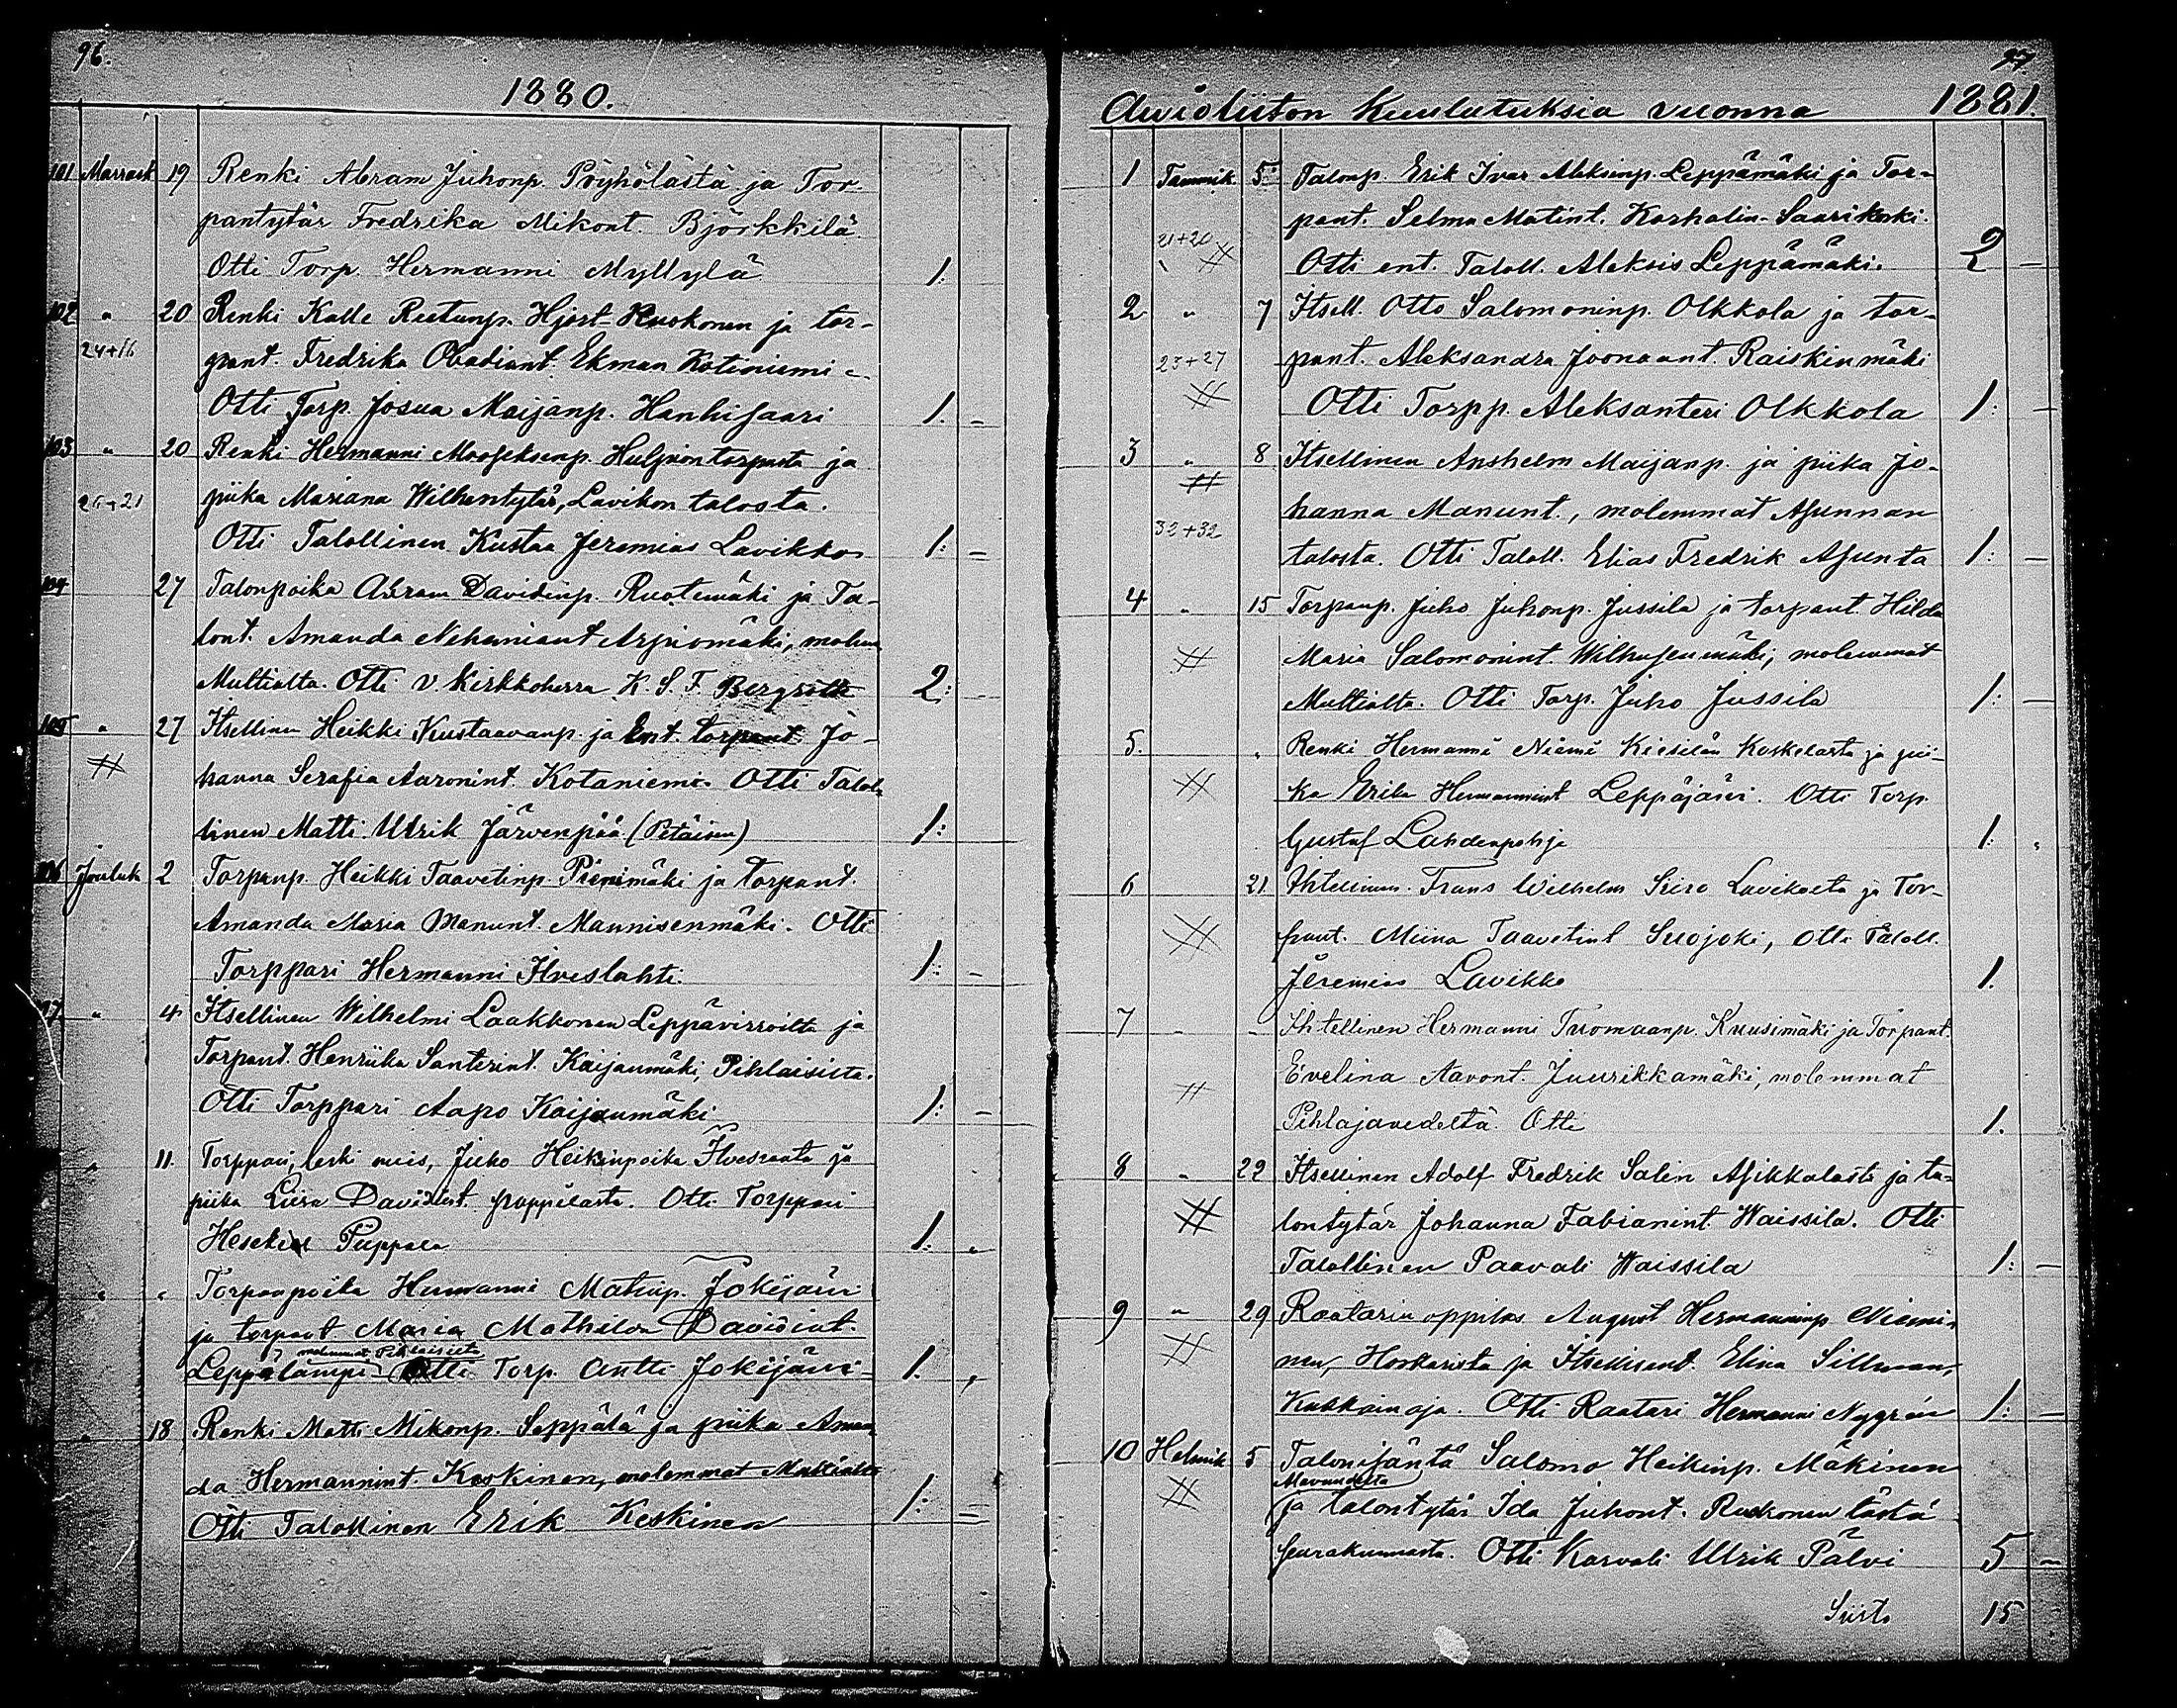 96.
1880.
101 Marrask 19 Renki Abram Juhonp. Pöyhölästä ja Tor-
pantytär Fredrika Mikont. Björkkilä.
Otti Torp. Hermanni Myllylä 1:
102 " 20 Renki Kalle Reetunp. Hjort-Ruokonen ja tor-
24+16 pant. Fredrika Obadiant. Ekman Kotiniemi
Otti Torp. Josua Maijanp. Hanhisaari 1. -
103 " 20 Renki Hermanni Mooseksenp. Huljuontorpasta ja
piika Mariana Wilhemtytär, Lavikon talosta.
Otti Talollinen Kustaa Jeremias Lavikko 1: -
104 27 Talonpoika Abram Davidinp. Ruotemäki ja Ta-
lont. Amanda Nehemiant Arpiomäki, molem
Multialta. Otti v. Kirkkoherra K. S. F. Bergroth 2: -
105 " 27 Itsellinen Heikki Kustaavanp. ja Ent. torpant. Jo-
hanna Serafia Aaronint. Kotaniemi. Otti Talol-
linen Matti Ulrik Järvenpää (Petäisen) 1:
106 Jouluk 2 Torpanp. Heikki Taavetinp. Pienimäki ja torpant.
Amanda Maria Manunt. Mannisenmäki. Otti
Torppari Hermanni Ilveslahti. 1: -
" 4 Itsellinen Wilhelmi Laakkonen Leppävirroilta ja
Torpant. Henriika Santerint. Kaijanmäki, Pihlaisista.
Otti Torppari Aapo Kaijanmäki 1: -
" 11. Torppari, leski mies, Juho Heikinpoika Ilvesraata ja
piika Liisa Davidint. pappilasta. Otti Torppari
Hesekiel Piippala 1: "
" " Torpanpoika Hermanni Matinp. Jokijärvi
ja torpant Maria Mathilda Davidint.
molemmat Pihlaisista
Leppälampi Otti Torp. Antti Jokijärvi 1. "
" 18 Renki Matti Mikonp. Seppälä ja piika Aman-
da Hermannint. Keskinen, molemmat Multialta
Otti Talollinen Erik Keskinen 1: =
97.
Avioliiton Kuulutuksia vuonna 1881.
1 Tammik 5 Talonp. Erik Ivar Aleksinp. Leppämäki ja Tor-
21+20 pant. Selma Matint. Korholin-Saarikoski.
Otti ent. Taloll. Aleksis Leppämäki. 2 -
2 " 7 Itsell. Otto Salomoninp. Olkkola ja tor-
23+27 pant. Aleksandra Joonaant. Raiskinmäki
Otti Torpp. Aleksanteri Olkkola 1: -
3 " 8 Itsellinen Anshelm Maijanp. ja piika Jo-
32+32 hanna Manunt., molemmat Asunnan
talosta. Otti Taloll. Elias Fredrik Asunta 1: -
4 " 15 Torpanp. Juho Juhonp. Jussila ja torpant. Hilda
Maria Salomonint. Wilhusenmäki, molemmat
Multialta. Otti Torp. Juho Jussila 1: -
5. " Renki Hermanni Niemi Kiesilän Koskelasta ja pii-
ka Erika Hermannint Leppäjärvi. Otti Torp.
Gustaf Lahdenpohja 1: "
6 21. Ihtellinen. Frans Wilhelm Siiro Lavikosta ja Tor-
pant. Miina Taavetint Suojoki, Otti Taloll.
Jeremias Lavikko 1.
7 " - Ihtellinen Hermanni Tuomaanp. Kuusimäki ja Torpant.
Evelina Aavont. Juurikkamäki, molemmat
Pihlajavedeltä. Otti 1.
8 " 22 Itsellinen Adolf Fredrik Salin Asikkalasta ja ta-
lontytär Johanna Fabianint. Waissila. Otti
Talollinen Paavali Waissila 1: -
9 " 29 Raatarin oppilas August Hermanninp. Niemi-
nen, Hoskarista ja Itsellisent. Elina Sillman,
Otti Raatari Hermanni Nygrén 1: -
10 Helmik 5 Talonisäntä Salomo Heikinp. Mäkinen
ja talontytär Ida Juhont. Ruokonen tästä
seurakunnasta. Otti Karvali Ulrik Pälvi 5 -
Siirto 15